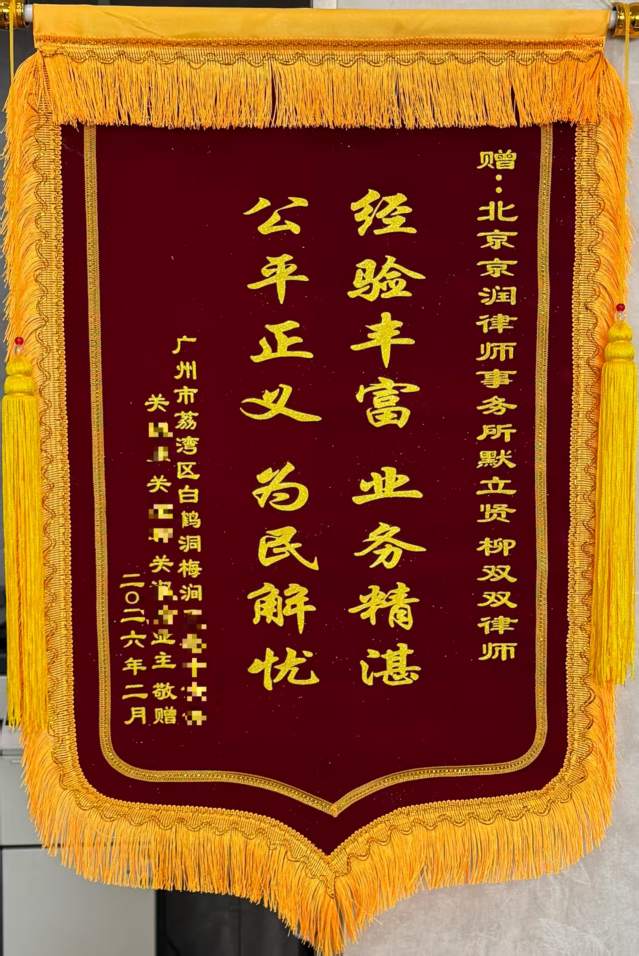 赠：北京京润律师事务所默立贤 柳双双律师
经验丰富 业务精湛
公平正义 为民解忧
广州市荔湾区白鹤洞梅涧
关 关 关 业主 敬赠
二〇二六年二月